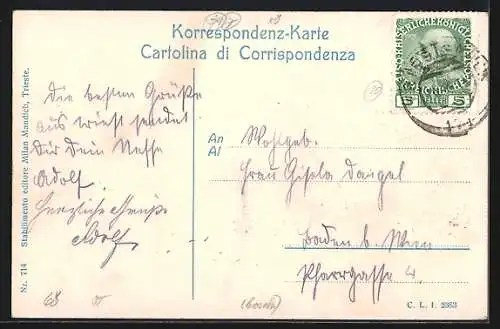 Korrespondenz-Karte
Cartolina di Corrispondenza
Die besten Grüße
aus Triest sendet
Dir Dein Neffe
Adolf.
Herzliche Grüße
Adolf.
An
Al
Wohlgeb.
Frau Gisela Dangel
Baden b. Wien
Pfarrgasse 4.
5 5
Nr. 714 Stabilimento editore Milan Mandich, Trieste.
C. L. I. 2353